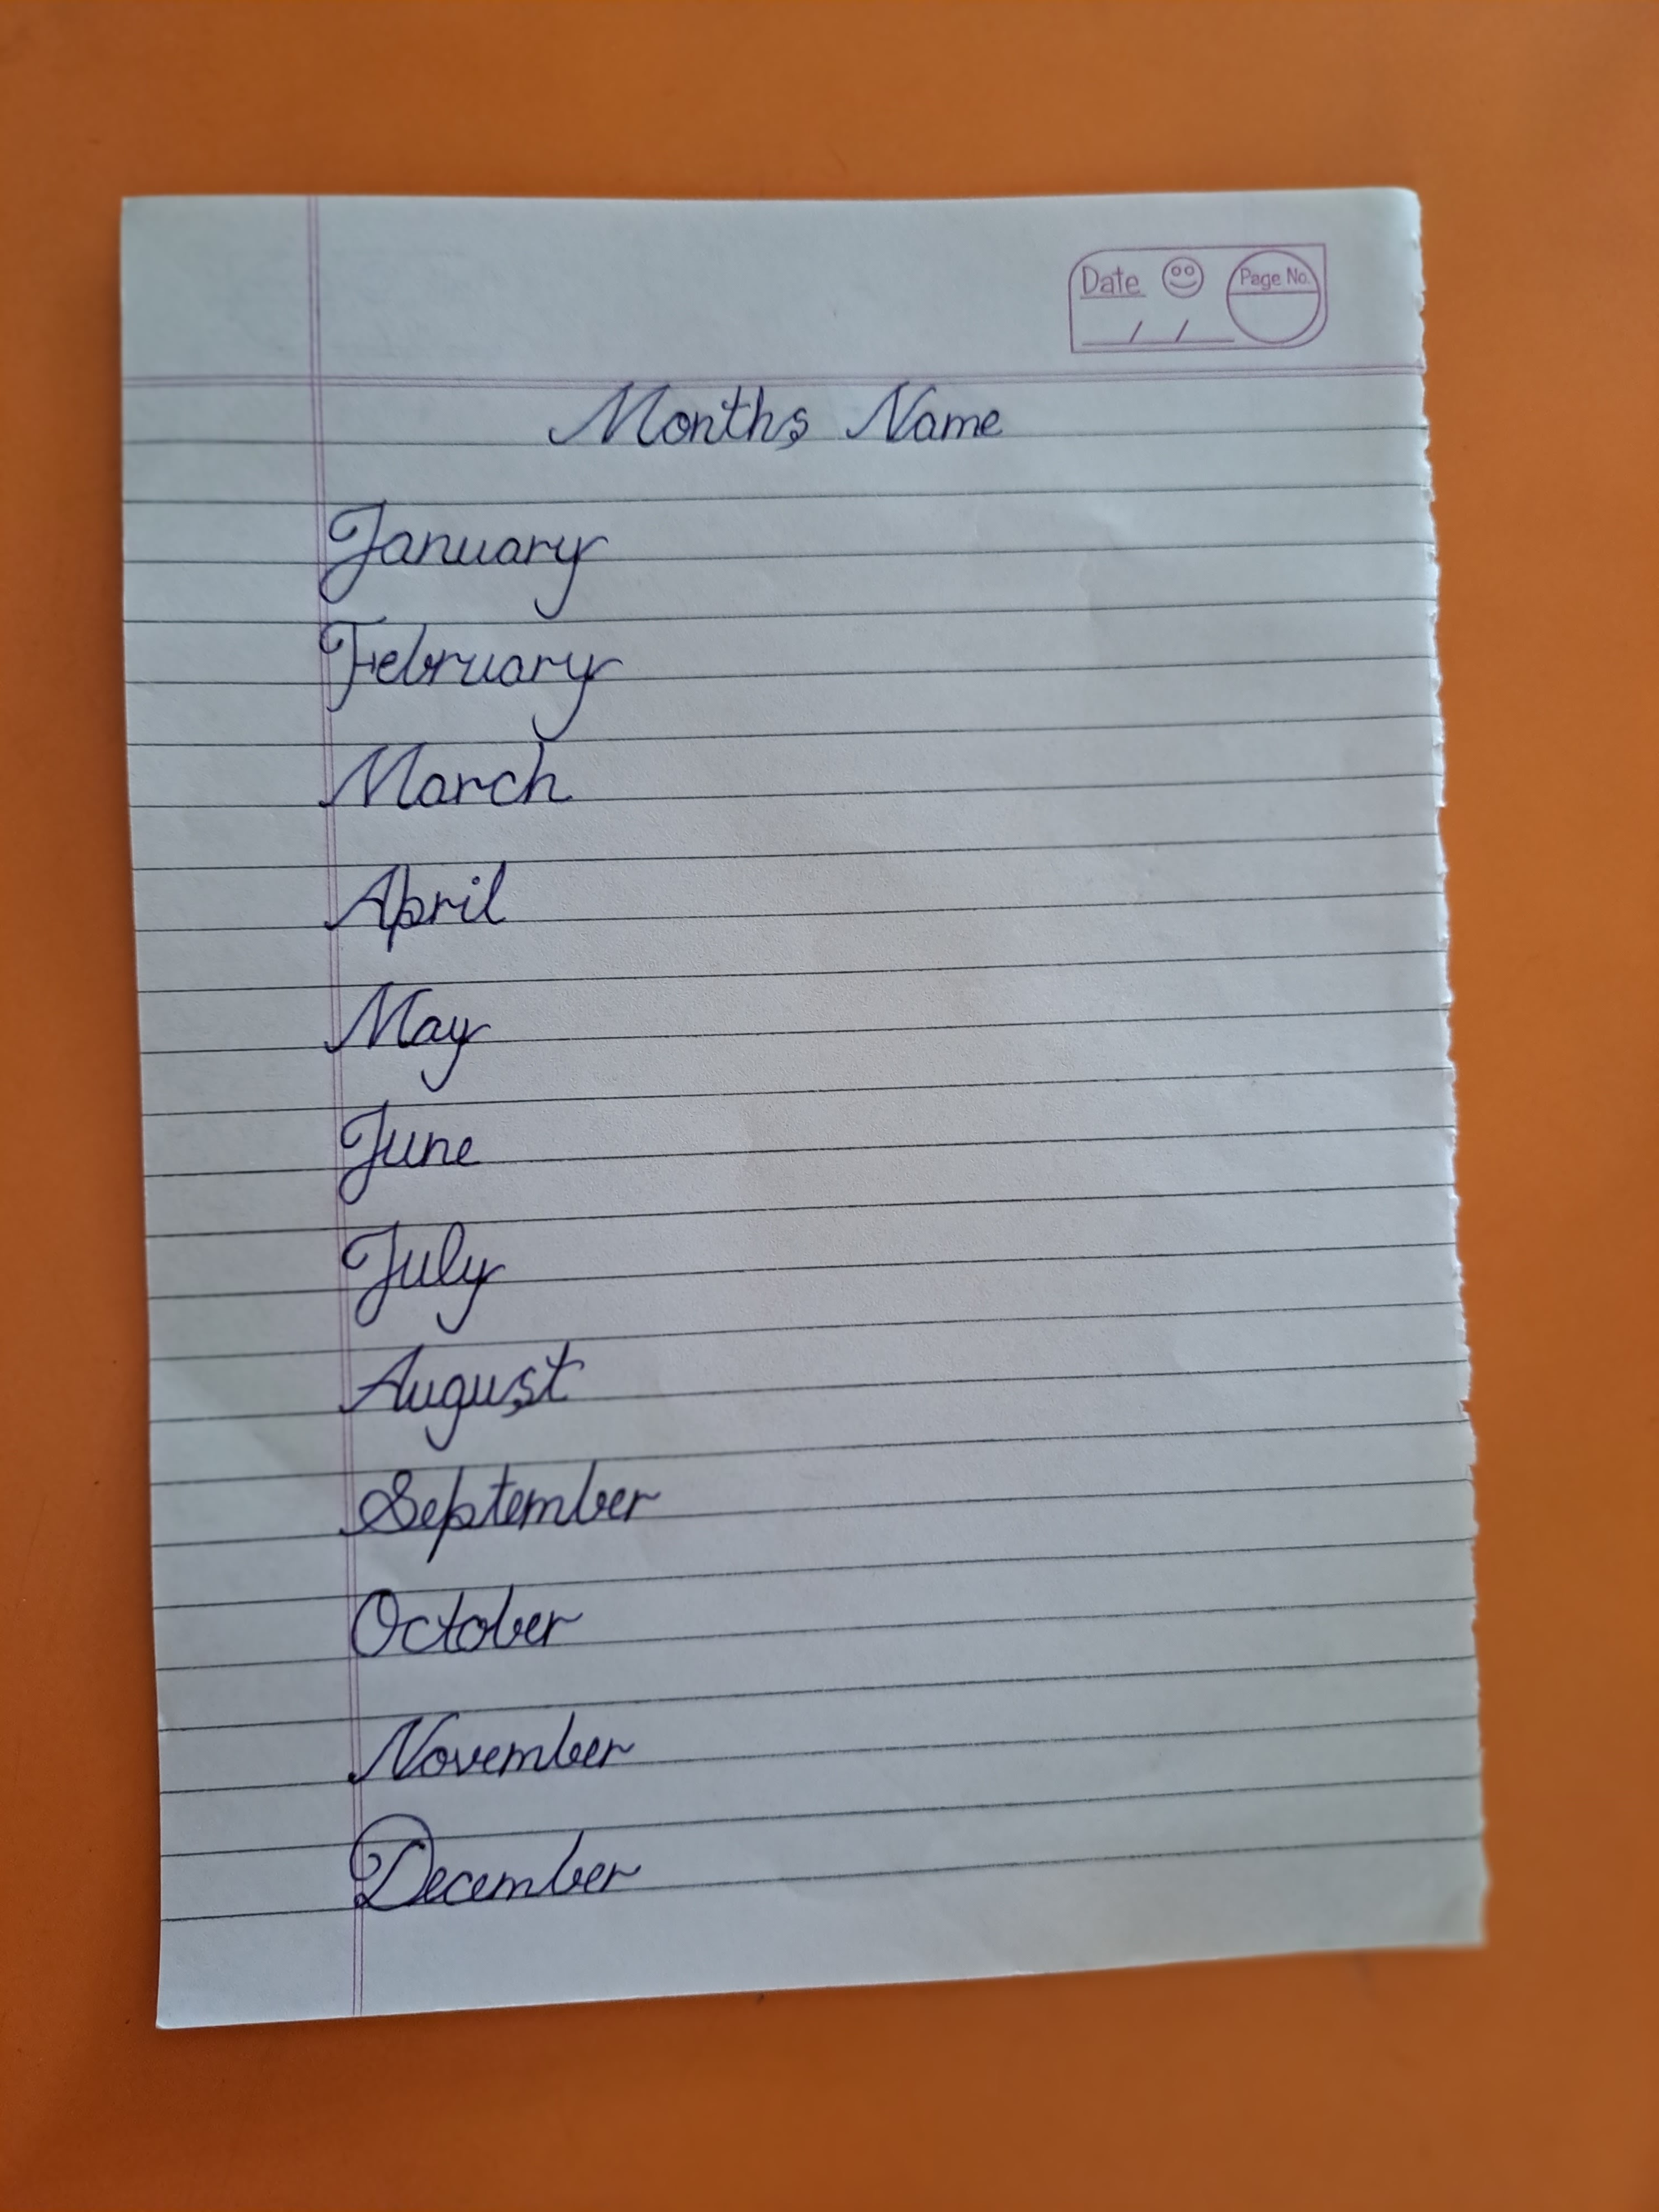 Date Page No.
/ /
Months Name
January
February
March
April
May
June
July
August
September
October
November
December